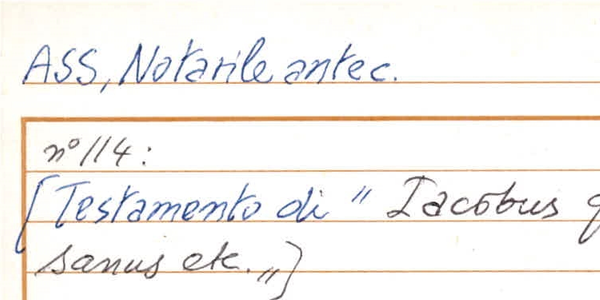 ASS, Notarile antec.
n° 114:
[Testamento di " Iacobus
sanus etc.„]